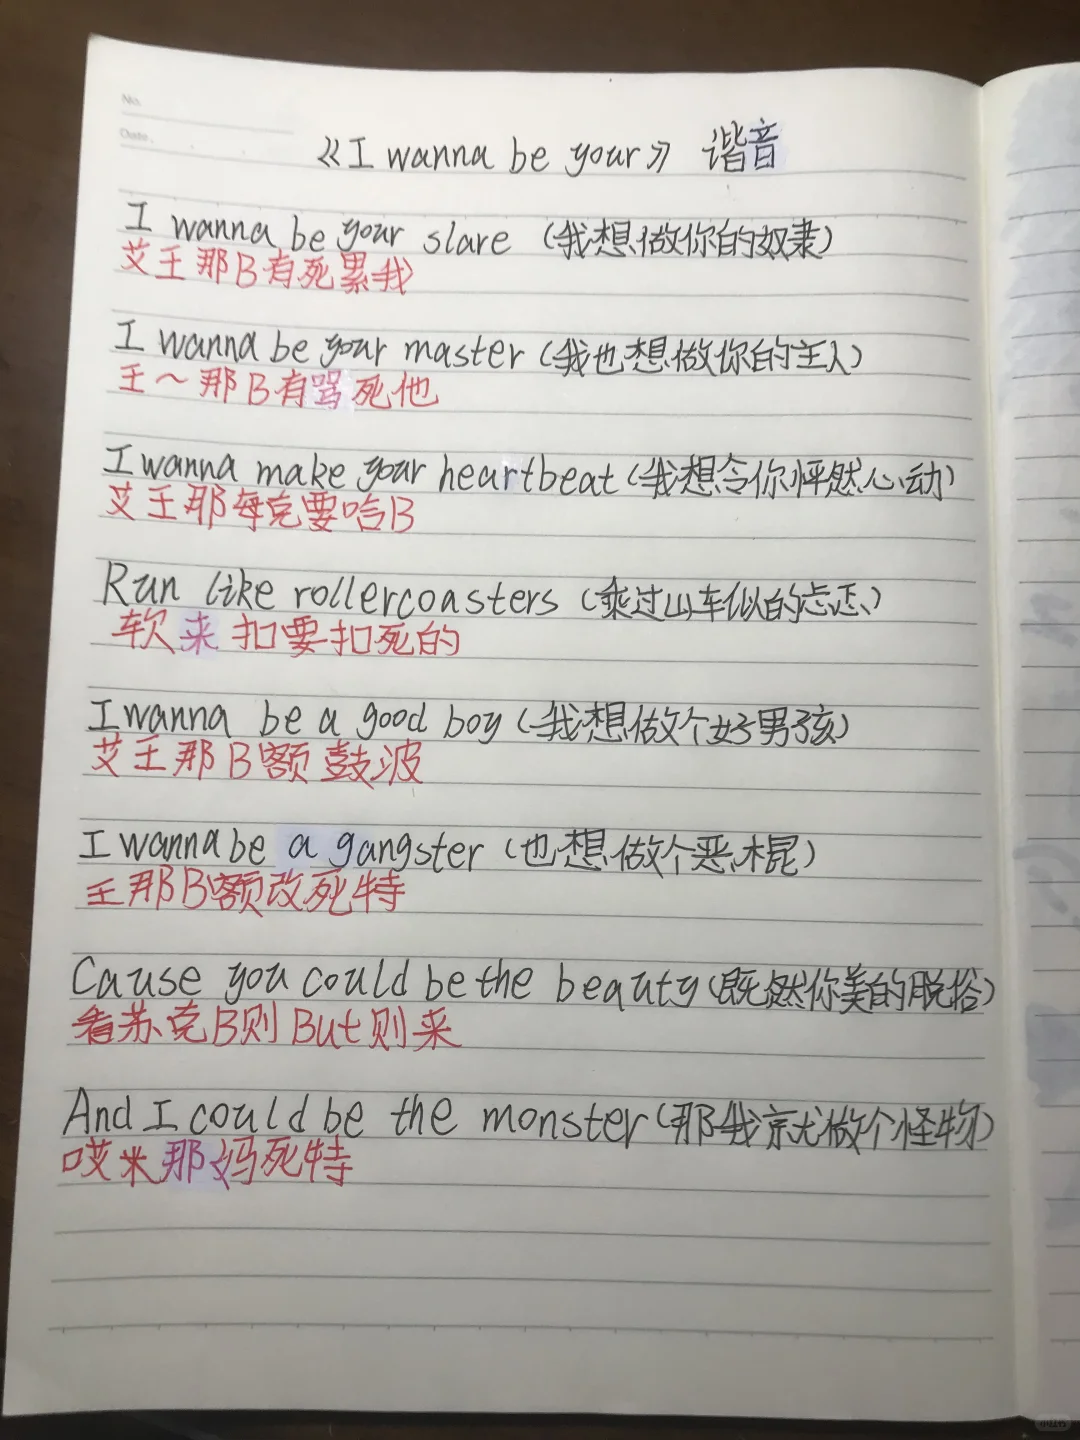 No.
Date.
《I wanna be your》 谐音
I wanna be your slare (我想做你的奴隶)
艾王那B有死累我
I wanna be your master (我也想做你的主人)
王～那B有骂死他
I wanna make your heartbeat (我想令你怦然心动)
艾王那每克要哈B
Run like rollercoasters (乘过山车似的忐忑)
软来扣要扣死的
I wanna be a good boy (我想做个好男孩)
艾王那B额鼓波
I wanna be a gangster (也想做个恶棍)
王那B额改死特
Cause you could be the beauty (既然你美的脱俗)
看苏克B则But则来
And I could be the monster (那我就做个怪物)
哎米那妈死特
小红书